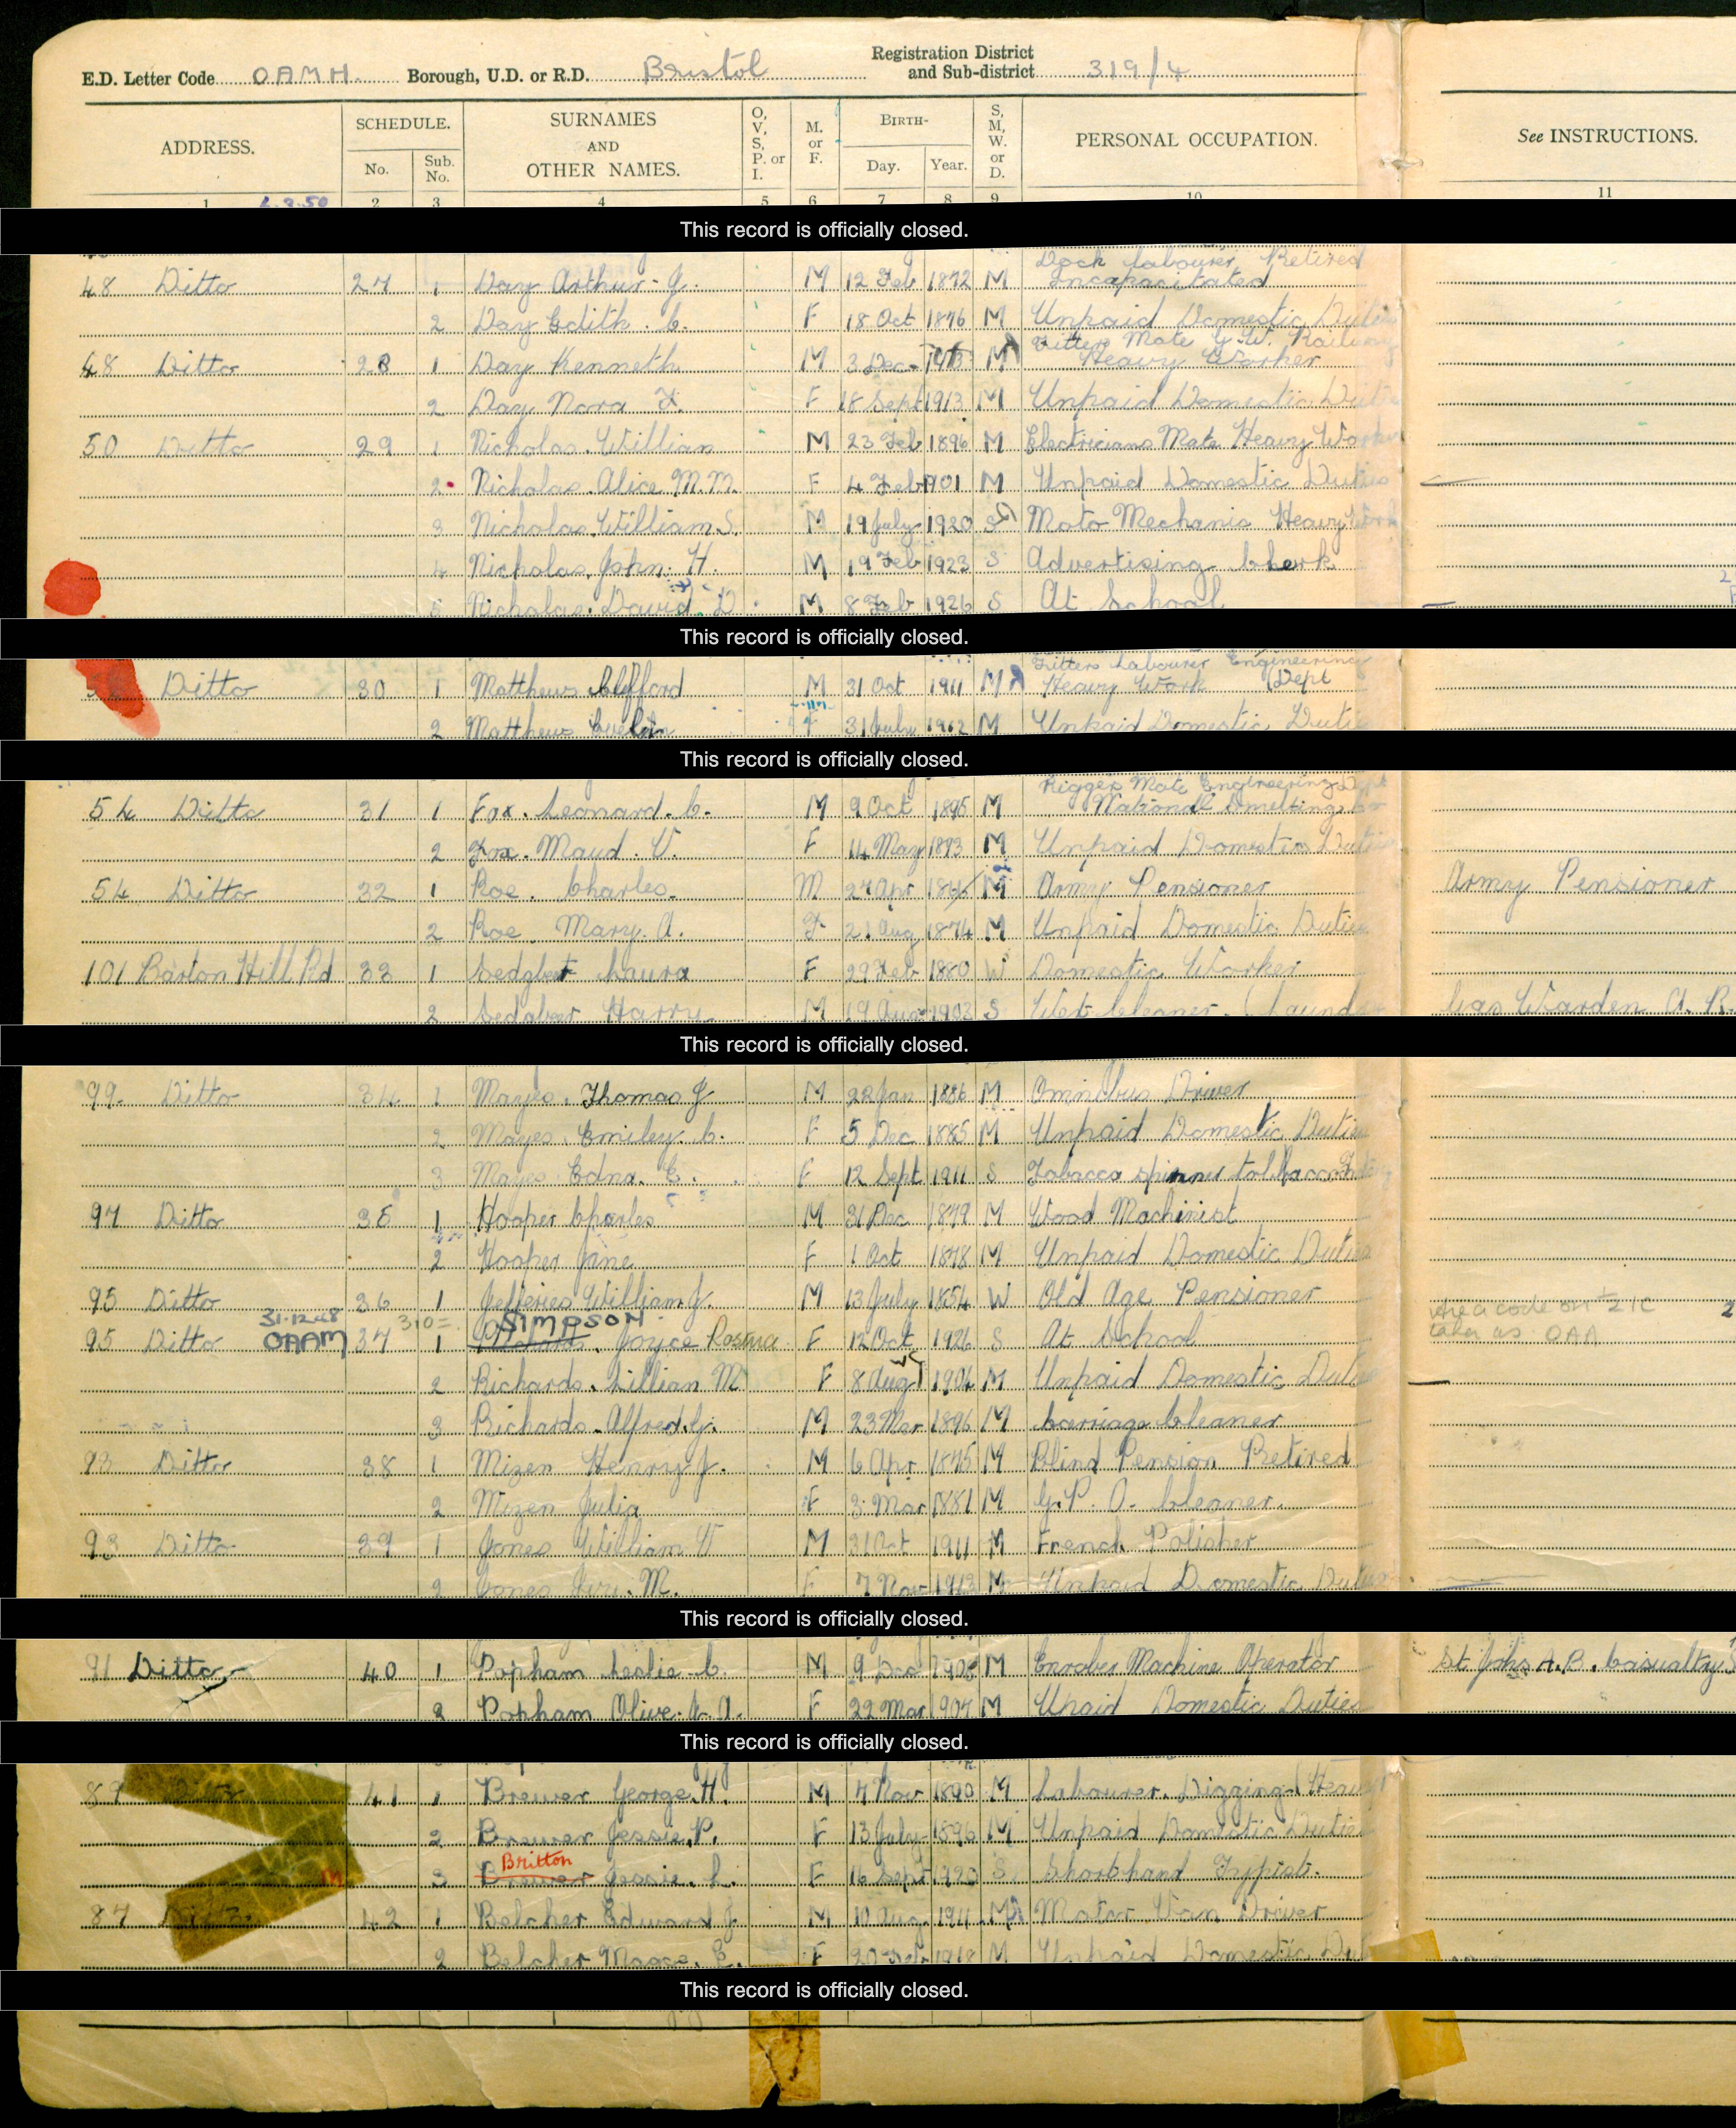 E.D. Letter Code OAMH Borough, U.D. or R.D. Bristol Registration District and Sub-district 319/4
ADDRESS. SCHEDULE. No. Sub. No. SURNAMES AND OTHER NAMES. O, V, S, P. or I. M. or F. BIRTH- Day. Year. S, M, W. or D. PERSONAL OCCUPATION. See INSTRUCTIONS.
1 2 3 4 5 6 7 8 9 10 11
This record is officially closed.
Dock Labourer Retired
48 Ditto 27 1 Day Arthur J. M 12 Feb 1872 M Incapacitated
2 Day Edith. C. F 18 Oct 1876 M Unpaid Domestic Duties
Fitters Mate G.W. Railway
48 Ditto 28 1 Day Kenneth M 3 Dec M Heavy Worker
2 Day Nora F. F 18 Sept 1913 M Unpaid Domestic Duties
50 Ditto 29 1 Nicholas. William M 23 Feb 1896 M Electricians Mate Heavy Worker
2 Nicholas. Alice M.M. F 4 Feb 1901 M Unpaid Domestic Duties
3 Nicholas. William. S. M 19 July 1920 S Moto Mechanic Heavy Work
4 Nicholas. John. H. M 19 Feb 1923 S Advertising Clerk
5 Nicholas. David. D M 8 Feb 1926 S At School
This record is officially closed.
Fitters Labourer Engineering
Ditto 30 1 Matthews Clifford M 31 Oct 1911 M Heavy Work (Dept
2 Matthews F 31 July 1912 M Unpaid Domestic Duties
This record is officially closed.
Rigger Mate Engineering Dept
54 Ditto 31 1 Fox. Leonard. C. M 9 Oct 1895 M National Smelting
2 Fox. Maud. V. F 14 May 1893 M Unpaid Domestic Duties
54 Ditto 32 1 Roe. Charles. M 27 Apr M Army Pensioner Army Pensioner
2 Roe. Mary. A. F 21 Aug 1874 M Unpaid Domestic Duties
101 Barton Hill Rd 33 1 Sedgbeer Laura F 29 Feb 1880 W Domestic Worker
2 Sedgbeer Harry. M 19 Aug 1903 S Wet Cleaner. (Laundry Gas Warden A. R.
This record is officially closed.
99. Ditto 34 1 Mayes. Thomas J M 22 Jan 1886 M Omnibus Driver
2 Mayes. Emiley. C. F 5 Dec 1885 M Unpaid Domestic Duties
3 Mayes Edna. E. F 12 Sept 1911 S Tobacco spinner
97 Ditto 35 1 Hooper Charles M 31 Dec 1879 M Wood Machinist
2 Hooper Jane F 1 Oct 1878 M Unpaid Domestic Duties
95 Ditto 36 1 Jefferies William J. M 13 July 1854 W Old Age Pensioner
31.12.48 SIMPSON Area code on 21C
95 Ditto OAAM 37 1 Richards. Joyce Rosina F 12 Oct 1926 S At School taken as OAA
2 Richards. Lillian M F 8 Aug 1904 M Unpaid Domestic Duties
3 Richards. Alfred. G. M 23 Mar 1896 M Carriage Cleaner
93 Ditto 38 1 Mizen Henry J. M 6 Apr 1875 M Blind Pension Retired
2 Mizen Julia F 3 Mar 1881 M G.P.O. Cleaner.
93 Ditto 39 1 Jones William V M 31 Oct 1911 M French Polisher
2 Jones Ivy. M. F 7 Nov 1913 M Unpaid Domestic Duties
This record is officially closed.
91 Ditto 40 1 Popham Leslie. C. M 9 Dec M Enrober Machine Operator St. Johns A.B. Casualty
2 Popham Olive. J. A. F 22 Mar 1907 M Unpaid Domestic Duties
This record is officially closed.
89 Ditto 41 1 Brewer George. H. M 7 Nov 1890 M Labourer. Digging (Heavy
2 Brewer Jessie. P. F 13 July 1896 M Unpaid Domestic Duties
Britton
3 Brewer Jessie. L. F 16 Sept 1920 S Shorthand Typist.
87 Ditto 42 1 Belcher Edward J. M 10 Aug 1911 M Motor Van Driver
2 Belcher F 20 Feb 1918 M Unpaid Domestic Du
This record is officially closed.